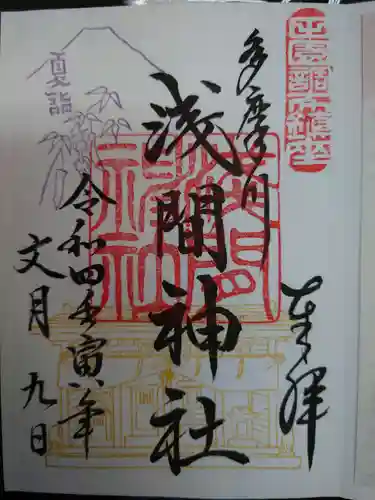 奉拝
多摩川
浅間神社
夏詣
令和四壬寅八年
文月九日
浅間神社